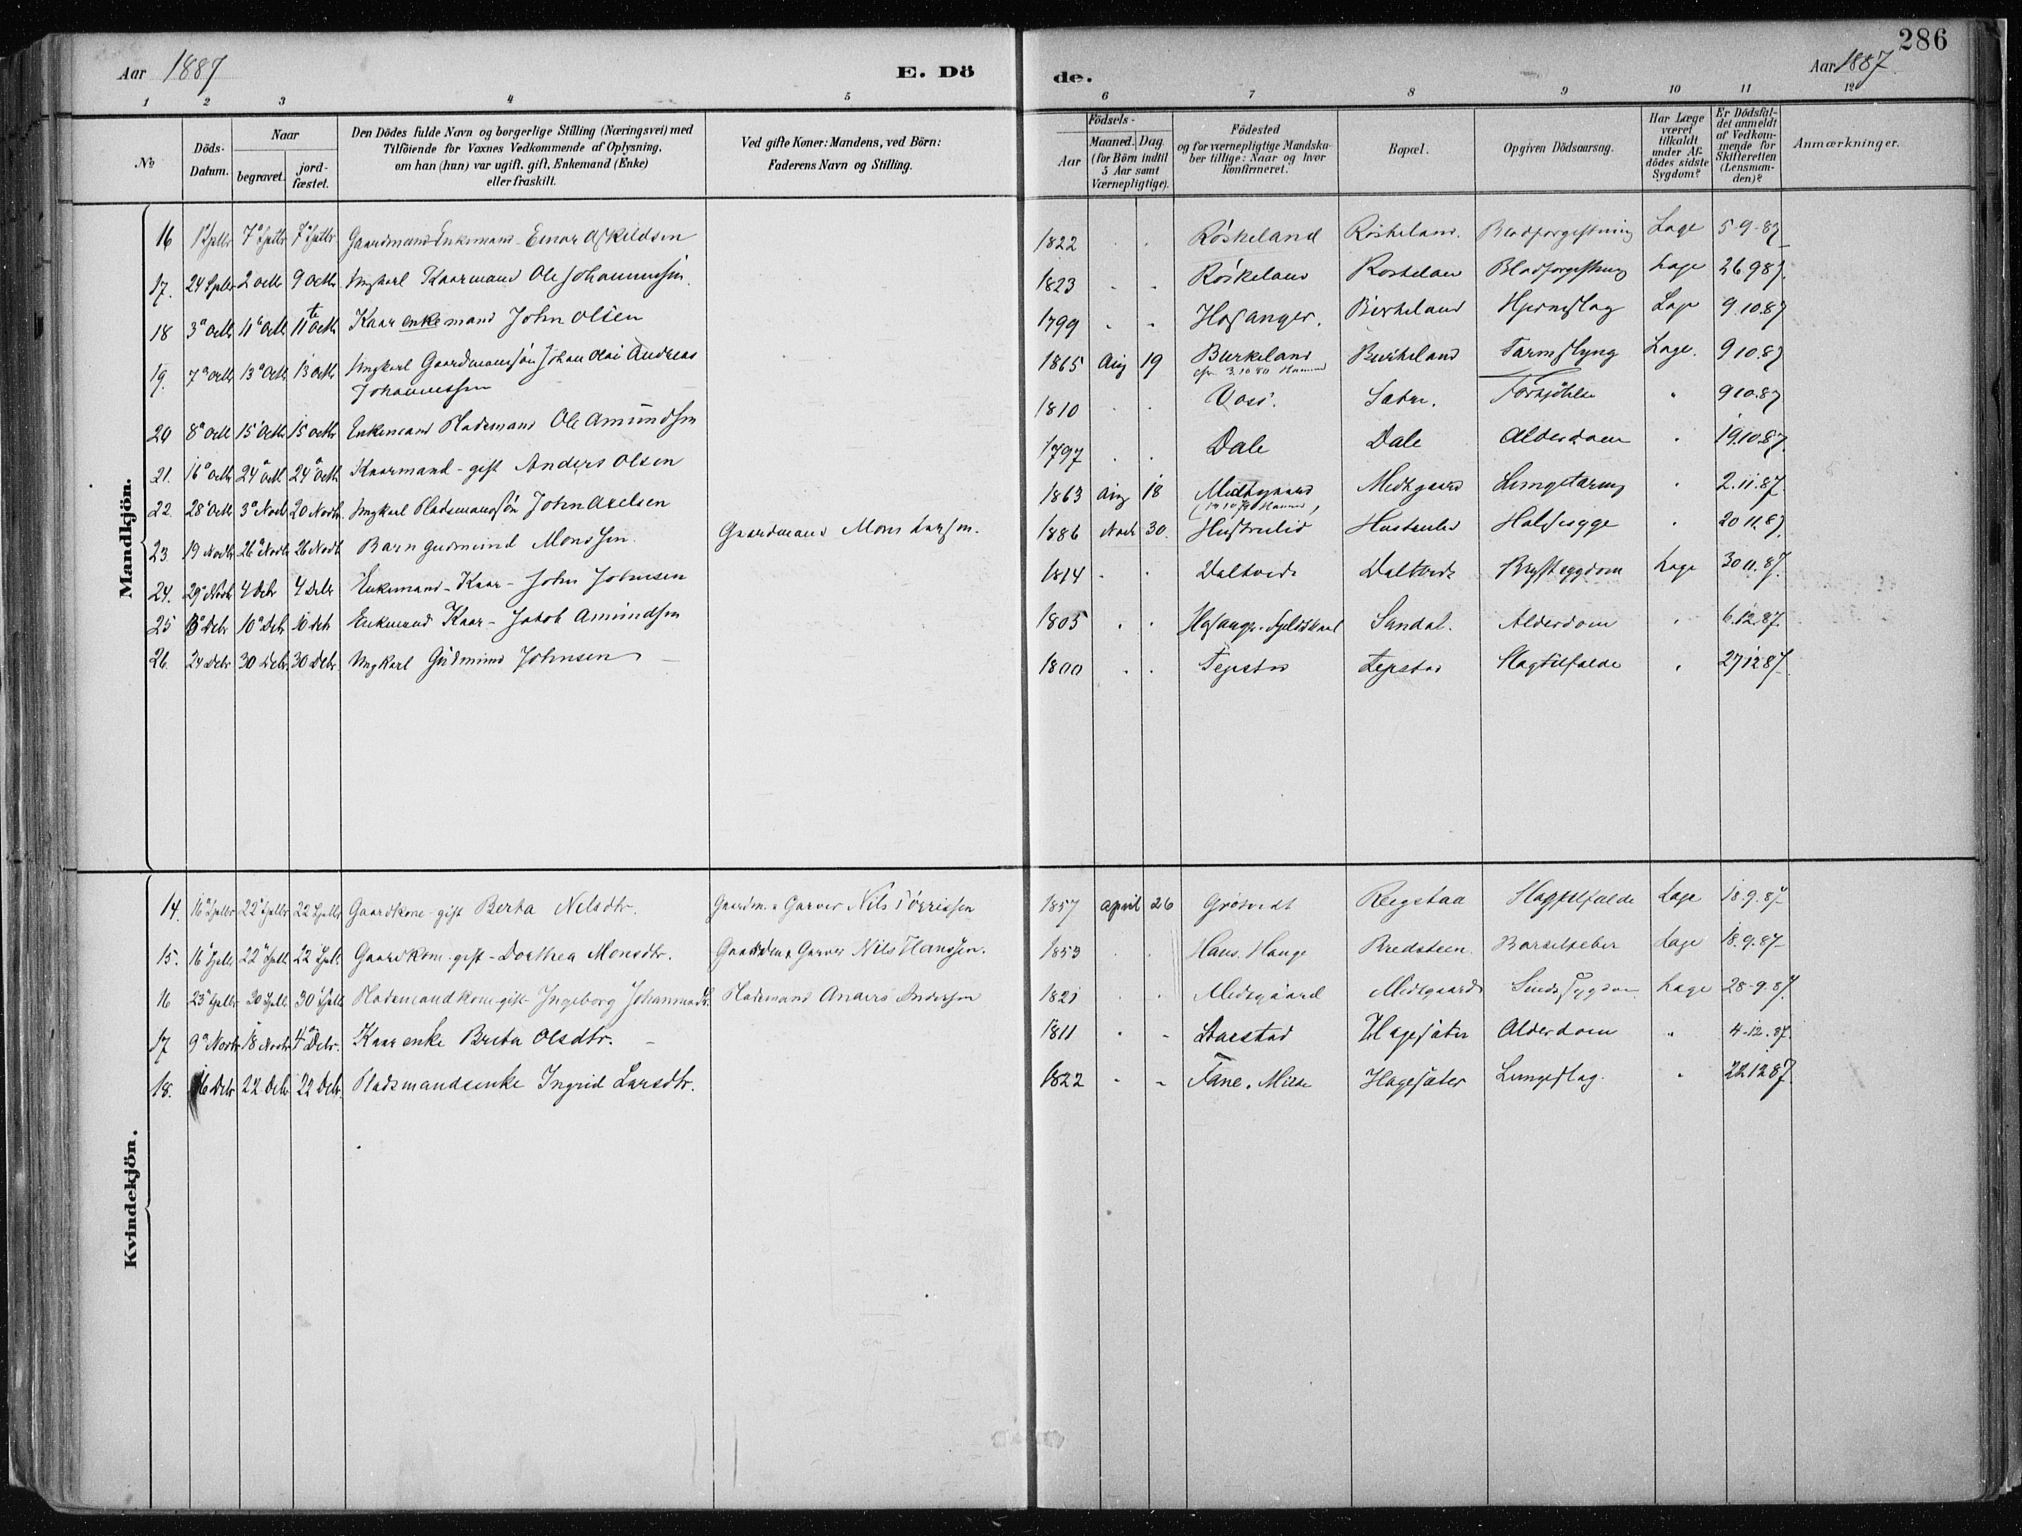 286
Aar 1887 E. Dö de. Aar 1887.
1 2 3 4 5 6 7 8 9 10 11 12
No
Döds-Datum.
Naar
begravet.
jord-fæstet.
Den Dödes fulde Navn og borgerlige Stilling (Næringsvei) med
Tilföiende for Voxnes Vedkommende af Oplysning,
om han (hun) var ugift, gift, Enkemand (Enke)
eller fraskilt.
Ved gifte Koner: Mandens, ved Börn:
Faderens Navn og Stilling.
Födsels-
Aar
Maaned. Dag.
(for Börn indtil
5 Aar samt
Værnepligtige).
Födested
og for værnepligtige Mandska-
ber tillige: Naar og hvor
konfirmeret.
Bopæl.
Opgiven Dödsaarsag.
Har Læge
været
tilkaldt
under Af-
dödes sidste
Sygdom?
Er Dödsfal-
det anmeldt
af Vedkom-
mende for
Skifteretten
(Lensman-
den)?
Anmærkninger.
Mandkjön.
16 1 Septbr 7 Septbr 7 Septbr Gaardmand Enkemand - Einar Askildsen 1822 Röskeland Röskeland. Blodforgiftning Læge 5-9-87
17. 24 Septbr 2 Octb 9 Octb Ungkarl Kaarmand Ole Johannessen. 1823 Röskeland Roskeland Blodforgiftning Læge 26 9 87
18 3 Octb 11 Octb 11te Octb Kaar enkemand John Olsen 1799 Hosanger. Birkeland Hjerneslag Læge 9 10.87
19. 7 Octb 13 Octb 13 Octb Ungkarl Gaardmanssön Johan Olai Andreas 1865 Aug 19 Birkeland Birkeland Tarmslyng Læge. 9 10.87
Johannessen
20 8 Octb 15 Octb 15 Octb Enkemand Pladsmand Ole Amundsen 1810 Voss. Sætre. Forkjölelse " 9 10.87
21. 16 Octb 24 Octb 24 Octb Kaarmand - gift Anders Olsen 1797 Dale Dale Alderdom " 19.10.87
22. 28 Octb 3 Novb 20 Novb Ungkarl Pladsmandssön John Axelsen 1863 Aug 18 Midtgaard Midtgaard Lungetæring " 2.11.87.
23. 19 Novb 26 Novb 26 Novb Barn Gudmund Monssen. Gaardmand Mons Larssen. 1886 Novb 30. Hustrulid Hustrulid Halssyge " 20 11.87
24. 29 Novb 4 Debr 4 Debr Enkemand - Kaar - John Johnsen 1814 Daltveidt Daltveidt Brystsygdom Læge 30 11.87.
25 5 Debr 10 Debr 10 Debr Enkemand Kaar - Jakob Amundsen 1805 Hosanger. Fjeldskaal Sandal. Alderdom " 6.12.87.
26. 24 Debr 30 Debr 30 Debr Ungkarl Gudmund Johnsen 1800 Tepstad Tepstad Slagtilfælde " 27 12 87.
Kvindekjön.
14. 16 Septbr 22 Septbr 22 Septbr Gaardkone - gift Berta Nilsdtr. Gaardm. & Garver Nils Törrissen 1857 April 26 Grötvedt Reigstad Slagtilfælde Læge 18.9.87
15. 16 Septbr 22 Septb 22 Septb. Gaardkone - gift - Dorthea Monsdtr. Gaardm & Garver Nils Hanssen. 1853 Haus. Hauge Bredsteen Barselfeber Læge 18.9.87.
16 23 Septbr 30 Septb 30 Septb Pladsmandkone - gift - Ingeborg Johannesdtr. Pladsmand Anders Andersen 1821 Midtgaard Midtgaard Sindssygdom Læge 28-9.87.
17 9 Novbr 18 Novbr 4 Debr. Kaar enke Brita Olsdtr. 1811 Hagesæter Alderdom " 4-12.87.
18. 16 Debr 22 Debr 22 Debr. Pladsmandsenke Ingrid Larsdtr. 1822 Fane. Milde Hagesæter Lungeslag. " 22 12 87.